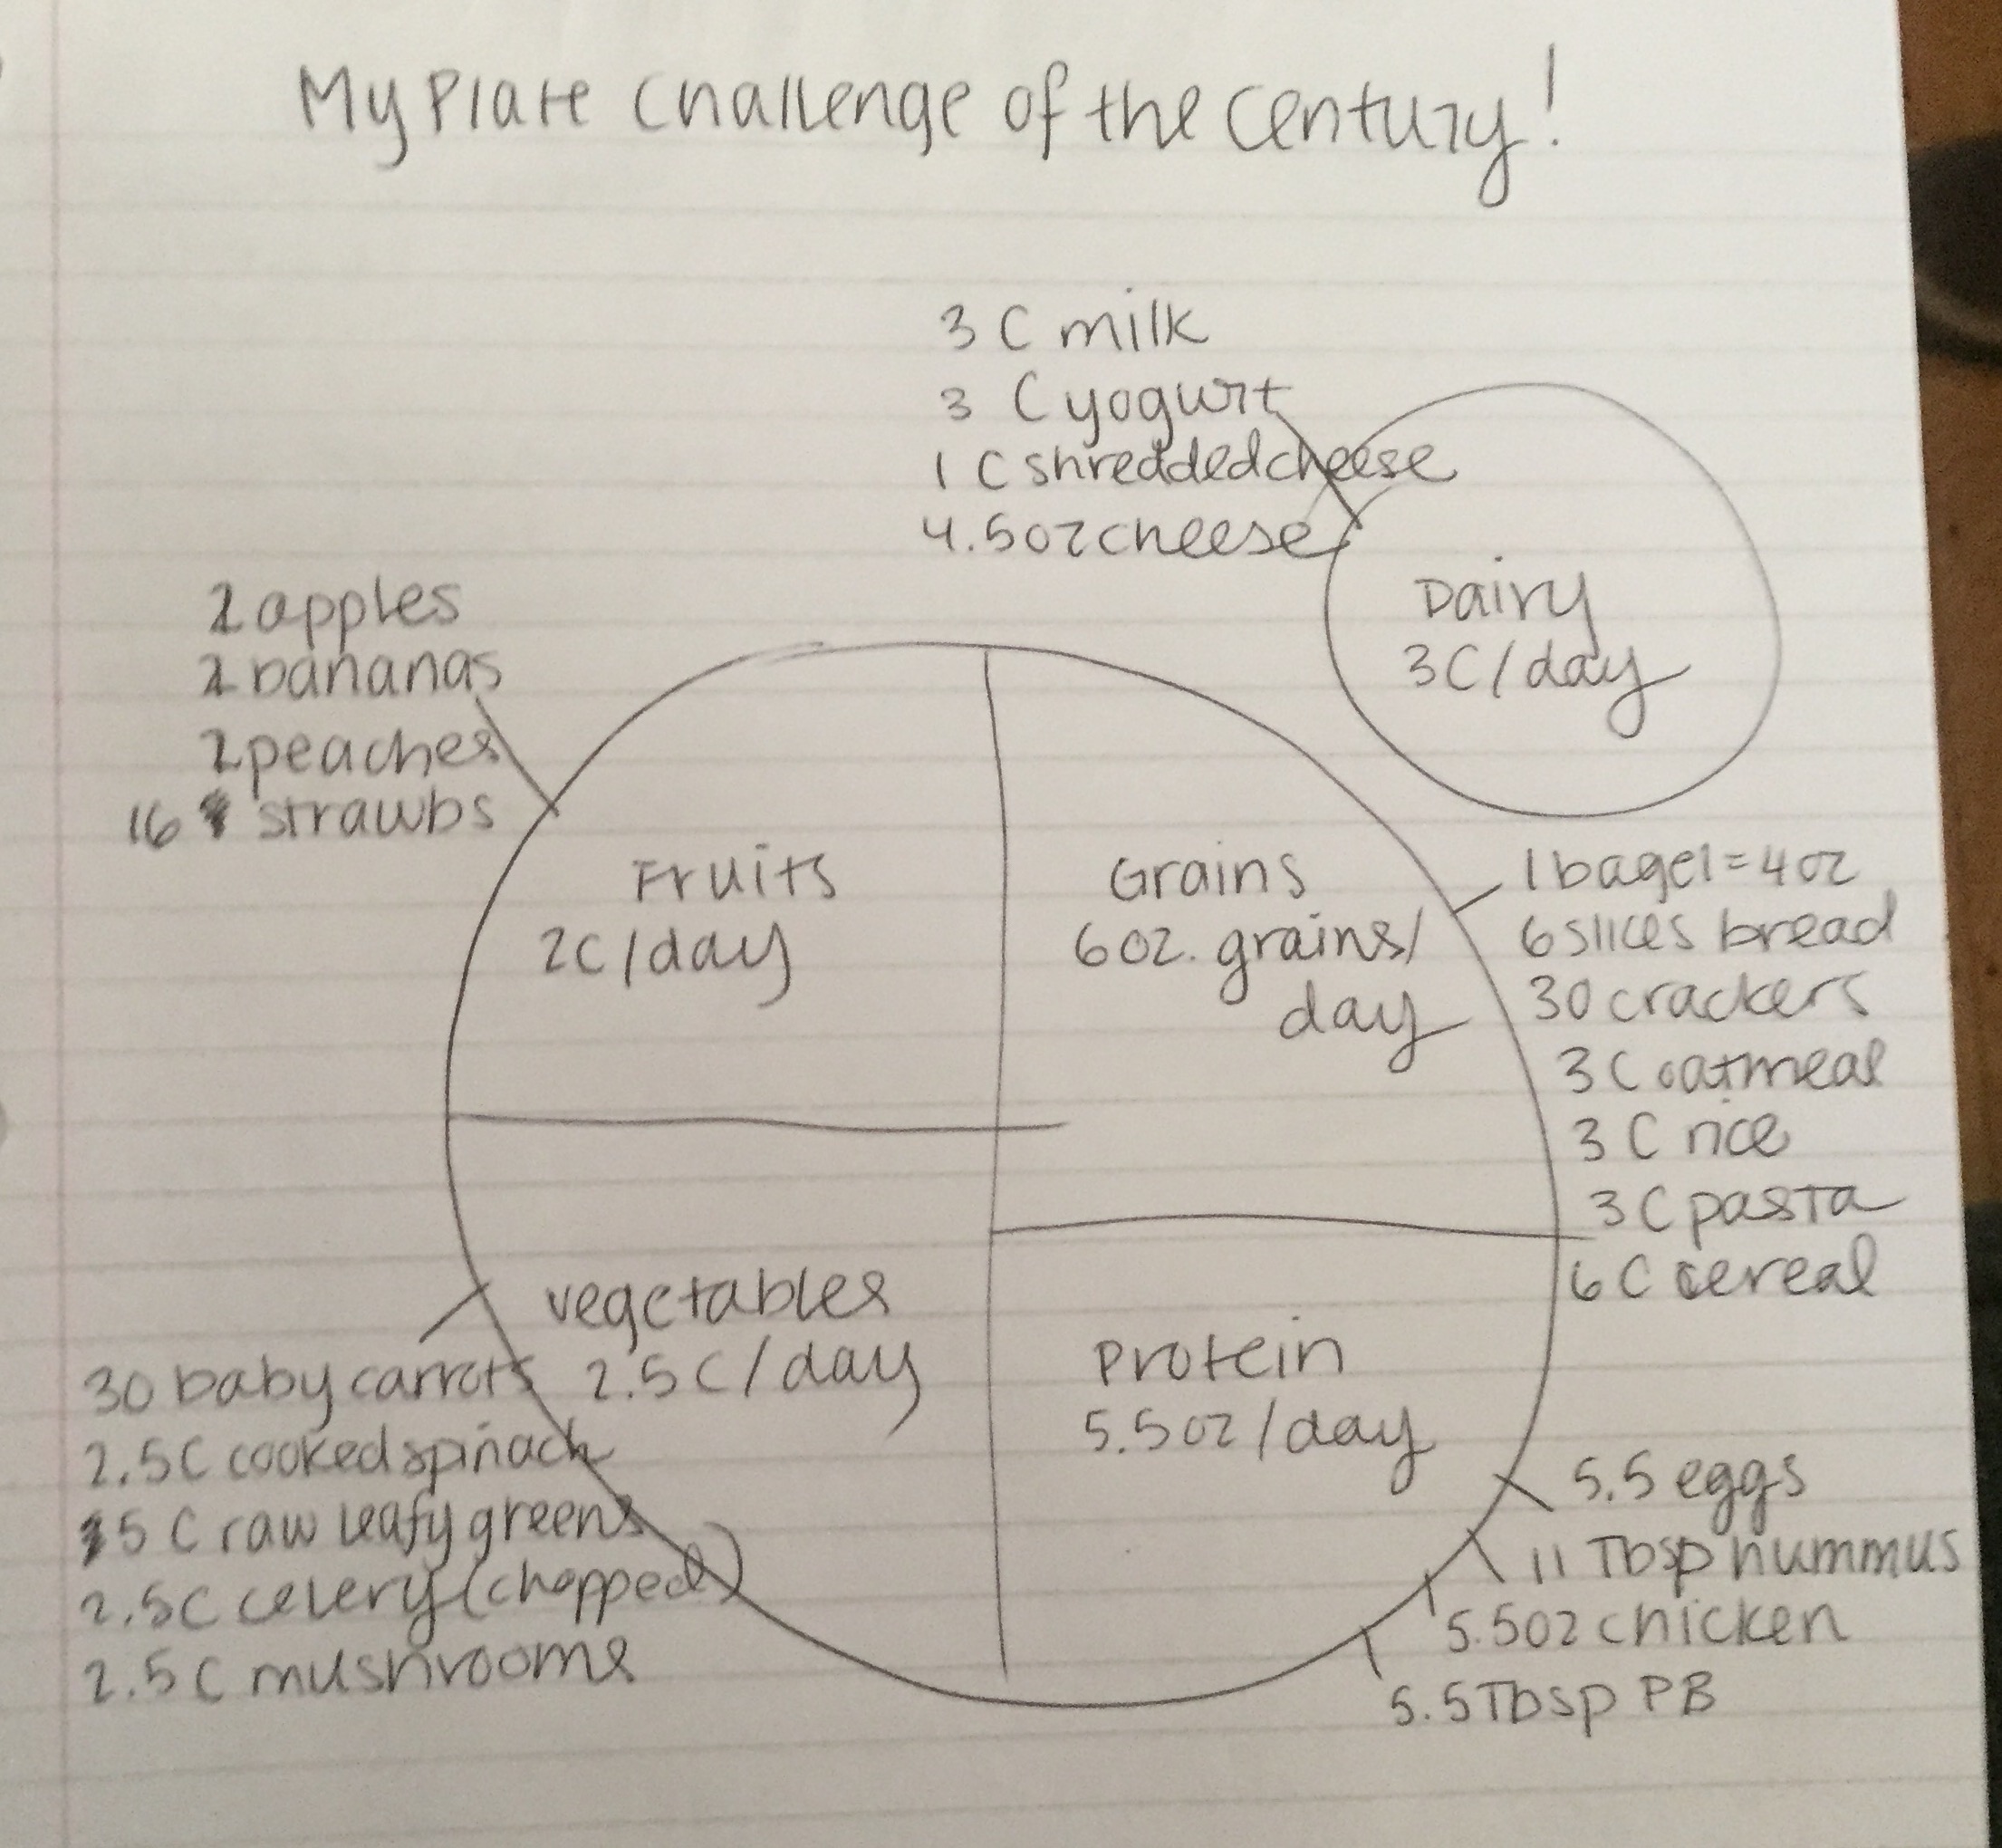 My Plate Challenge of the Century!
3 C milk
3 C yogurt
1 C shredded cheese
4.5oz cheese
Dairy
3C/day
2 apples
2 bananas
2 peaches
16 strawbs
Fruits
2C/day
Grains
6oz. grains/
day
1 bagel = 4oz
6 slices bread
30 crackers
3 C oatmeal
3 C rice
3 C pasta
6 C cereal
vegetables
2.5C/day
30 baby carrots
2.5C cooked spinach
5 C raw leafy greens
2.5C celery (chopped)
2.5C mushrooms
Protein
5.5oz/day
5.5 eggs
11 Tbsp hummus
5.5oz chicken
5.5Tbsp PB